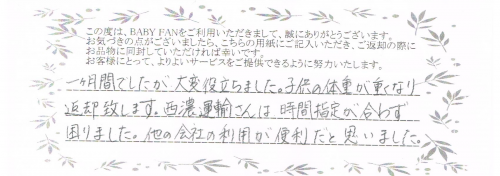 この度は、BABY FANをご利用いただきまして、誠にありがとうございます。
お気づきの点がございましたら、こちらの用紙にご記入いただき、ご返却の際に
お品物に同封していただければ幸いです。
お客様にとって、よりよいサービスをご提供できるように努力いたします。
一ヶ月間でしたが大変役立ちました。子供の体重が重くなり
返却致します。西濃運輸さんは時間指定が合わず
困りました。他の会社の利用が便利だと思いました。